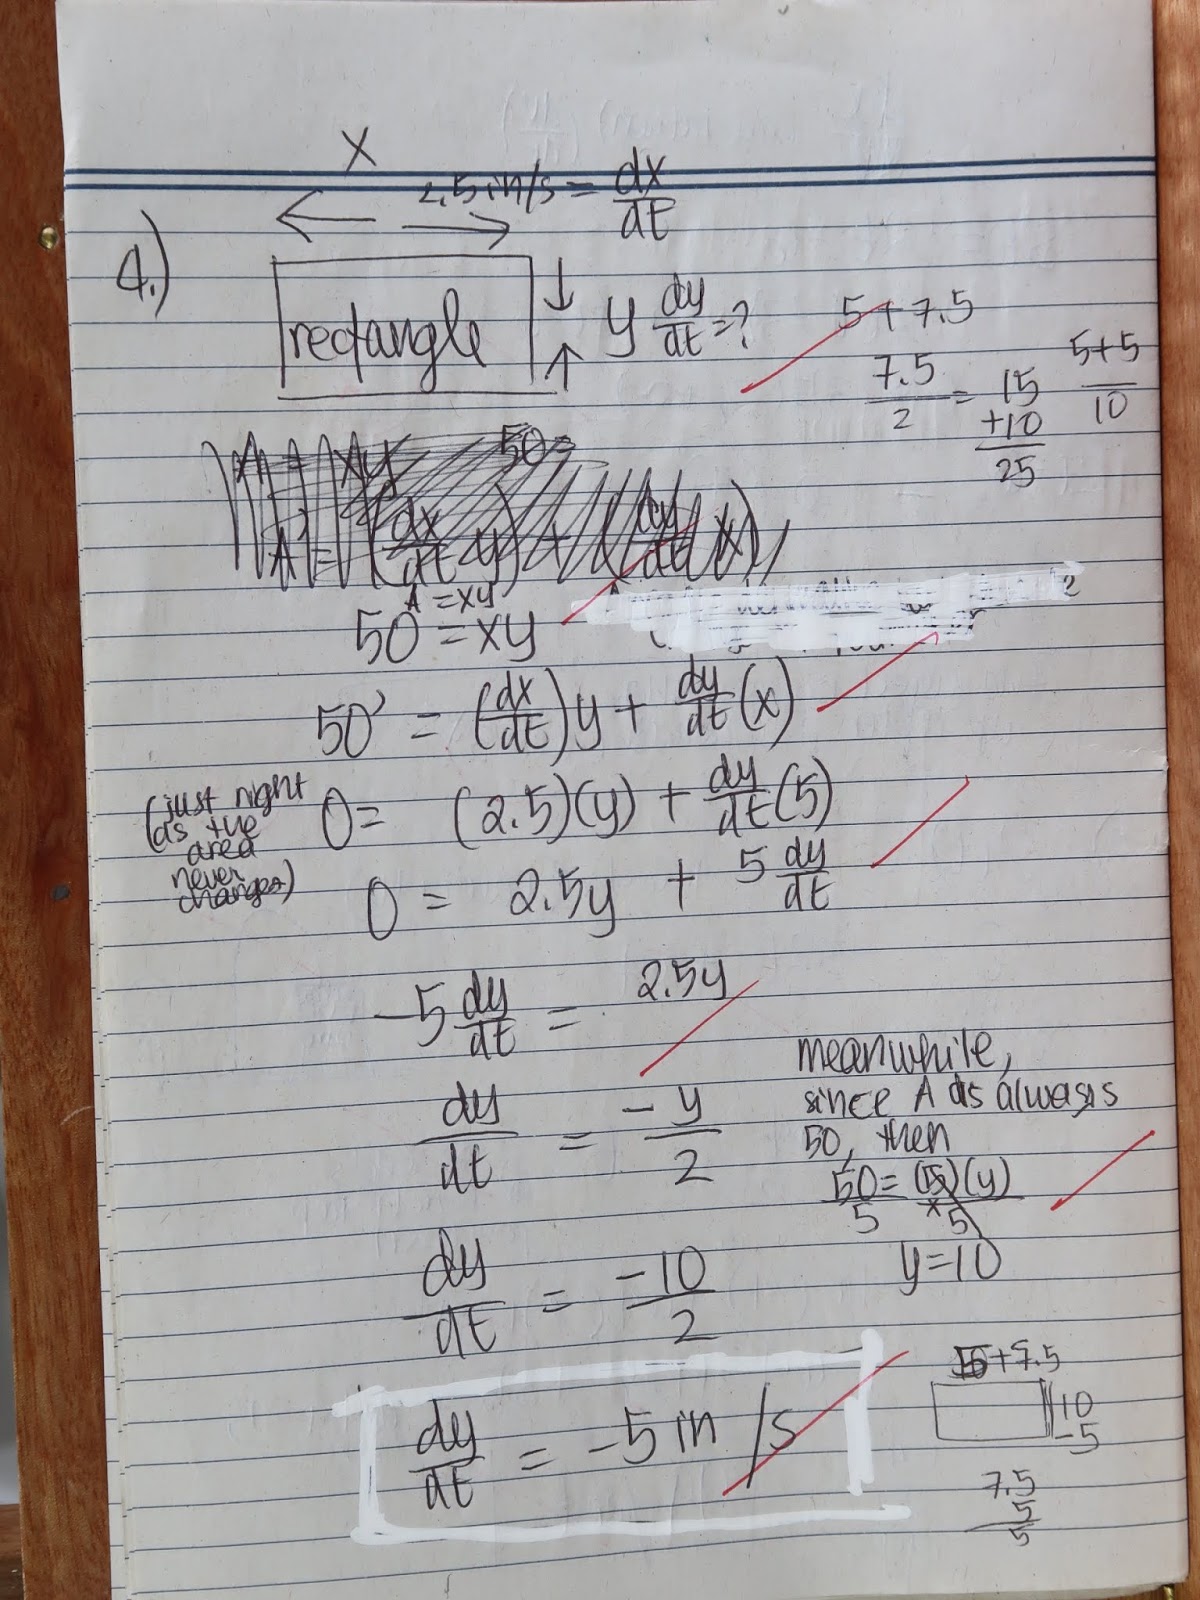 X
2.5 in/s = dx/dt
4.)
rectangle
y dy/dt = ?
5 + 7.5
7.5/2 = 15
+10
25
5+5
10
xy
50 =
A' = (dx/dt y) + (dy/dt (x))
A = xy
50 = xy
50' = (dx/dt)y + dy/dt(x)
(just right
as the
area
never
changes)
0 = (2.5)(y) + dy/dt(5)
0 = 2.5y + 5 dy/dt
-5 dy/dt = 2.5y
dy/dt = -y/2
meanwhile,
since A is always
50, then
50/5 = (5)(y)/5
y=10
dy/dt = -10/2
dy/dt = -5 in/s
+7.5
10
-5
7.5
5
5